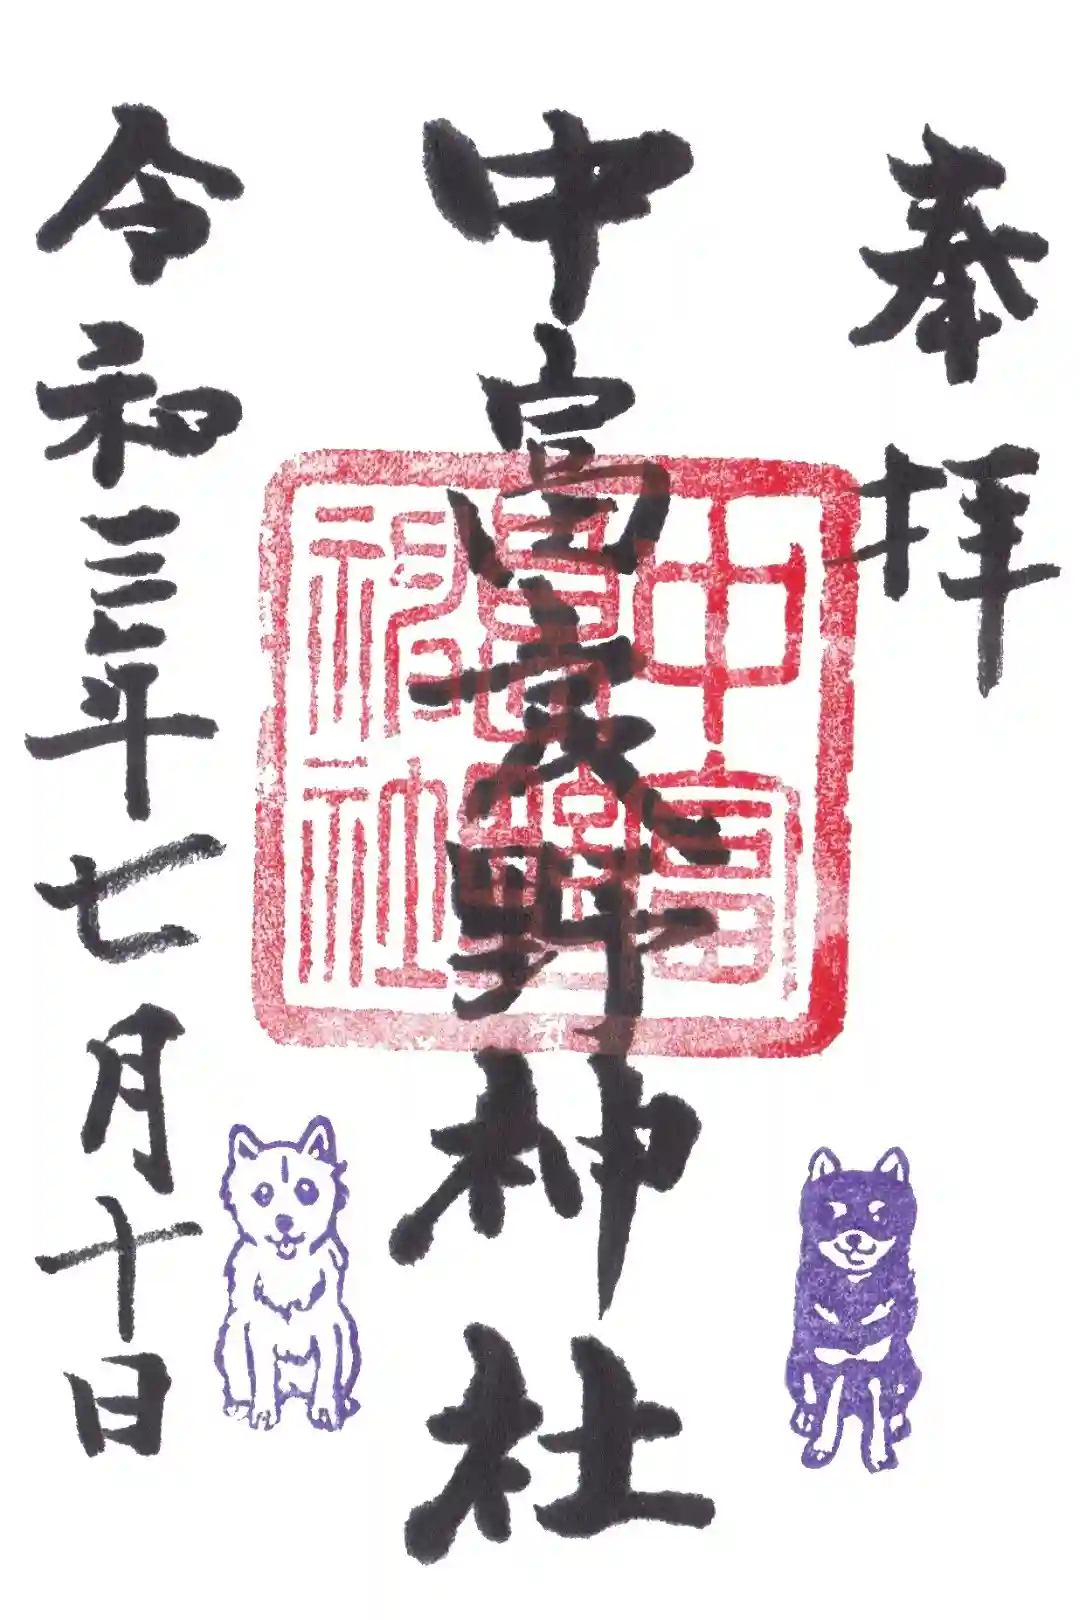 奉拝
中富熊野神社
中富熊野神社
令和三年七月十日